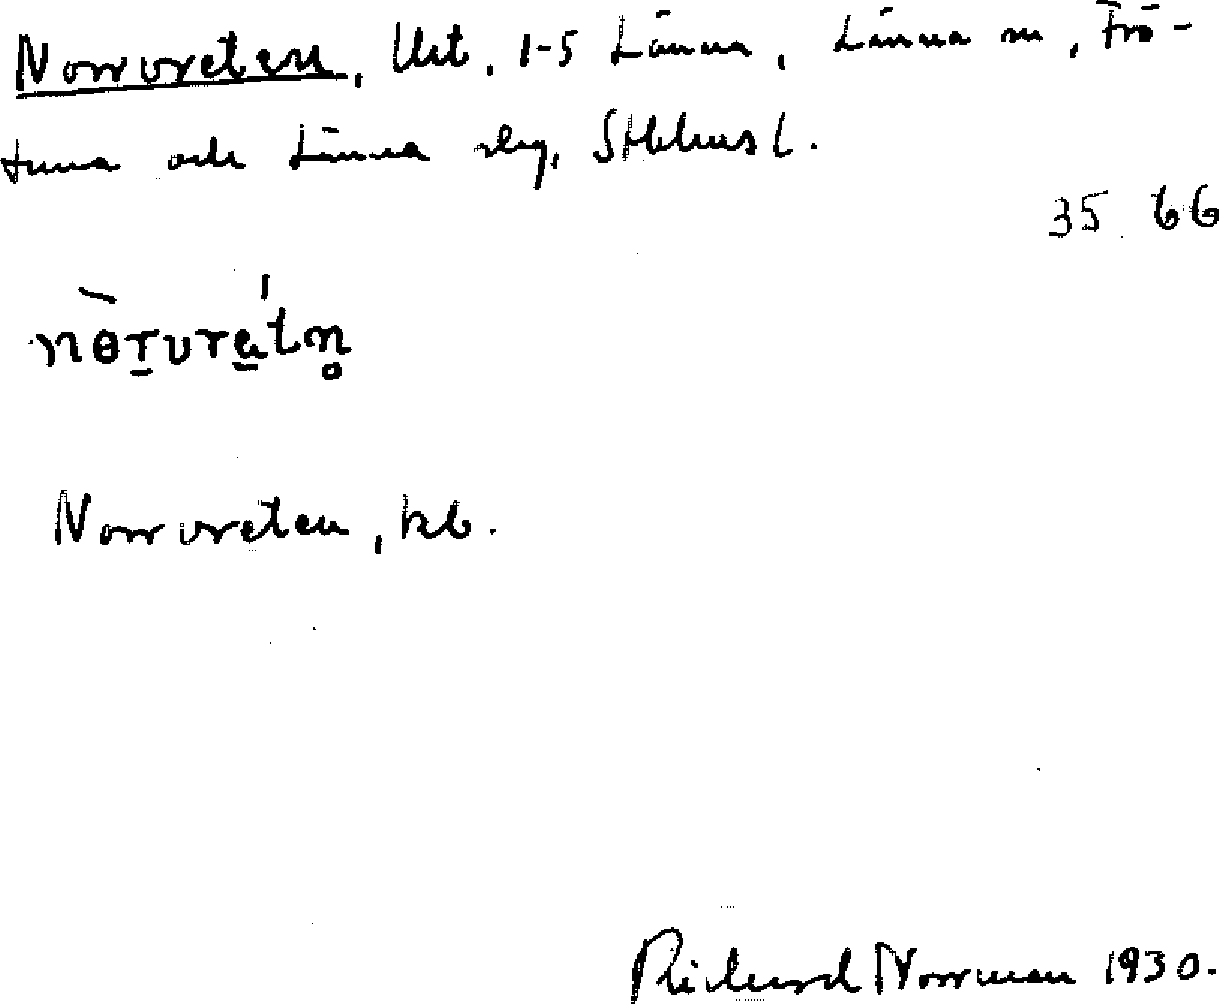 Norrvreten, Utt. 1-5 Länna, Länna sn, Frö-
tuna och Länna slg, Sthlms l.
35 66
nɵrvre̱tn̥
Norrvreten, kb.
Rickard Norrman 1930.